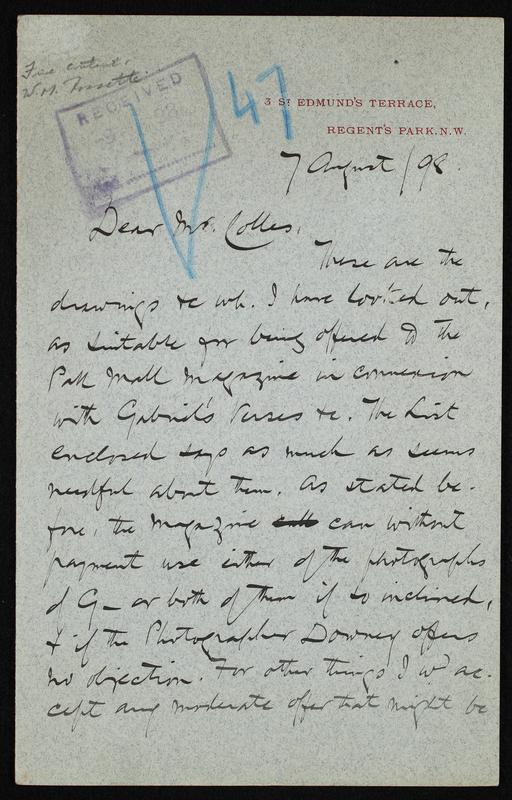 W. M. Rossetti
RECEIVED
47
3 St EDMUND'S TERRACE,
REGENT'S PARK. N.W.
7 August /98.
Dear Mr. Colles,
These are the
drawings &c wh. I have looked out,
as suitable for being offered to the
Pall Mall Magazine in connexion
with Gabriel's Verses &c. The List
enclosed says as much as seems
needful about them. As stated be-
fore, the Magazine can without
payment use either of the photographs
of G— or both of them if so inclined,
& if the Photographer Downey offers
no objection. For other things I wd ac-
cept any moderate offer that might be